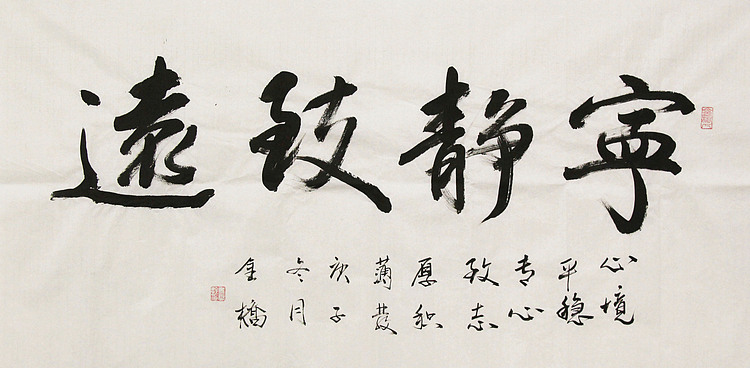 寧靜致遠
心境
平稳
专心
致志
厚积
薄發
庚子
冬月
金橋